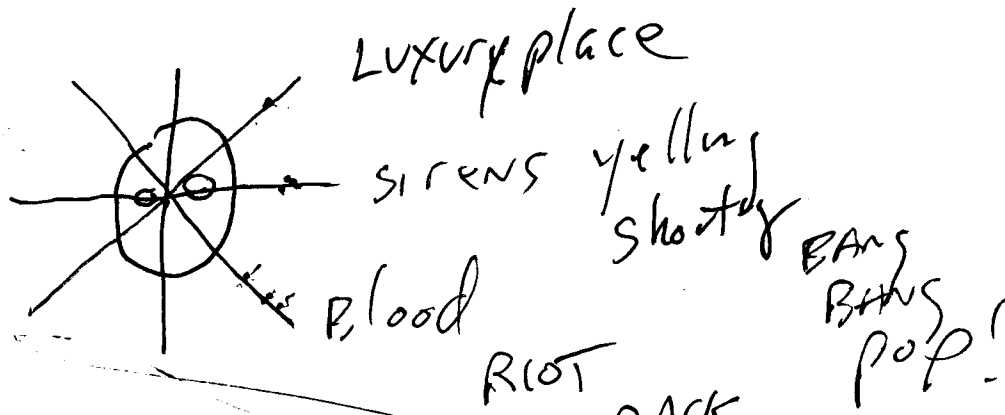 Luxury place
SIRENS yelling
shooting
BANG
BANG
pop!
Blood
RIOT